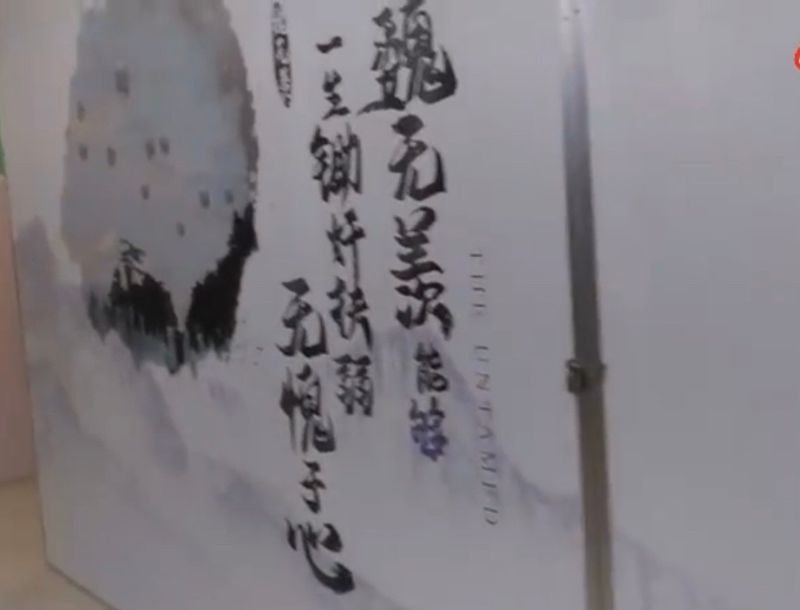 THE UNTAMED
魏无羡能够
一生锄奸扶弱
无愧于心